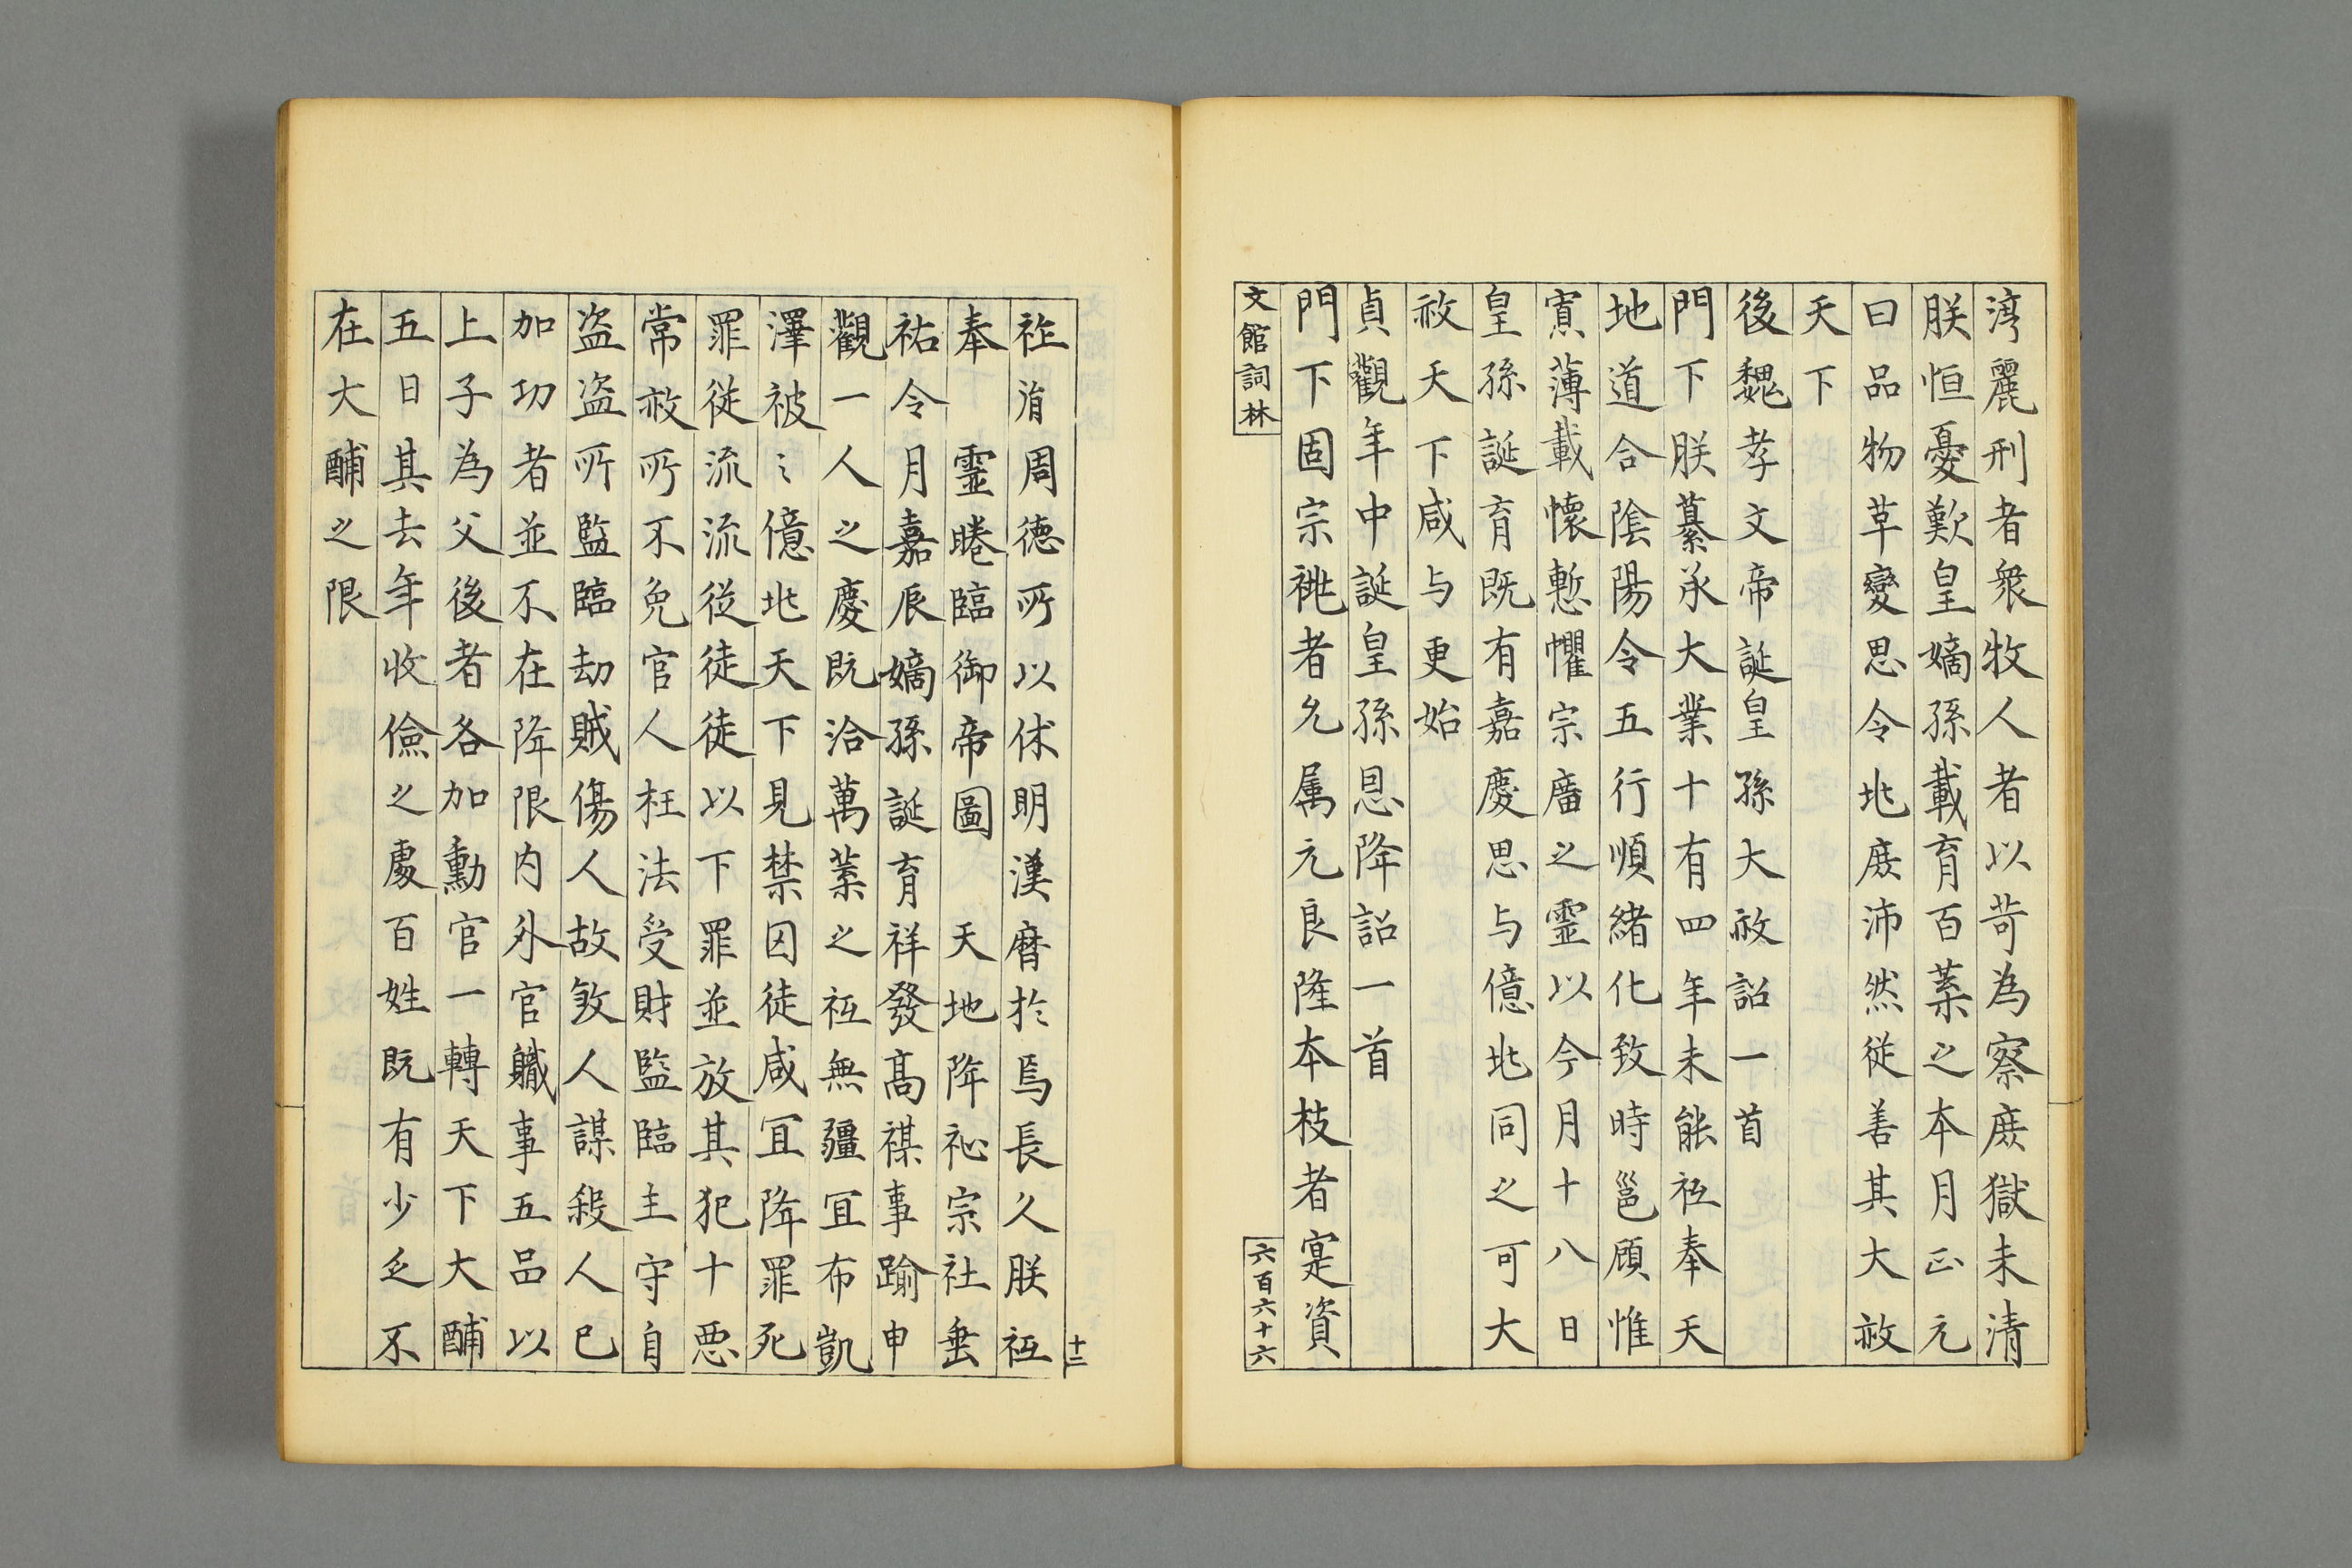 濤麗刑者衆牧人者以苛為察庶獄未清
朕恒憂歎皇嫡孫載育百葉之本月正元
日品物草變思令兆庶沛然從善其大赦
天下
後魏孝文帝誕皇孫大赦詔一首
門下朕纂承大業十有四年未能祗奉天
地道合陰陽令五行順緒化致時邕顧惟
寡薄載懷慙懼宗廟之靈以今月十八日
皇孫誕育既有嘉慶思与億兆同之可大
赦天下咸与更始
貞觀年中誕皇孫恩降詔一首
門下固宗祧者允属元良隆本枝者寔資
文館詞林
六百六十六
祚
周德所以休明漢曆於焉長久朕祗
奉 靈睠臨御帝圖 天地降祉宗社垂
祐令月嘉辰嫡孫誕育祥發高禖事踰申
觀一人之慶既洽萬葉之祗無疆宜布凱
澤被之億兆天下見禁囚徒咸宜降罪死
罪從流流從徒徒以下罪並放其犯十惡
常赦所不免官人枉法受財監臨主守自
盗盗所監臨劫賊傷人故敓人謀殺人已
加功者並不在降限内外官軄事五品以
上子為父後者各加勳官一轉天下大酺
五日其去年收儉之處百姓既有少乏不
在大酺之限
十二